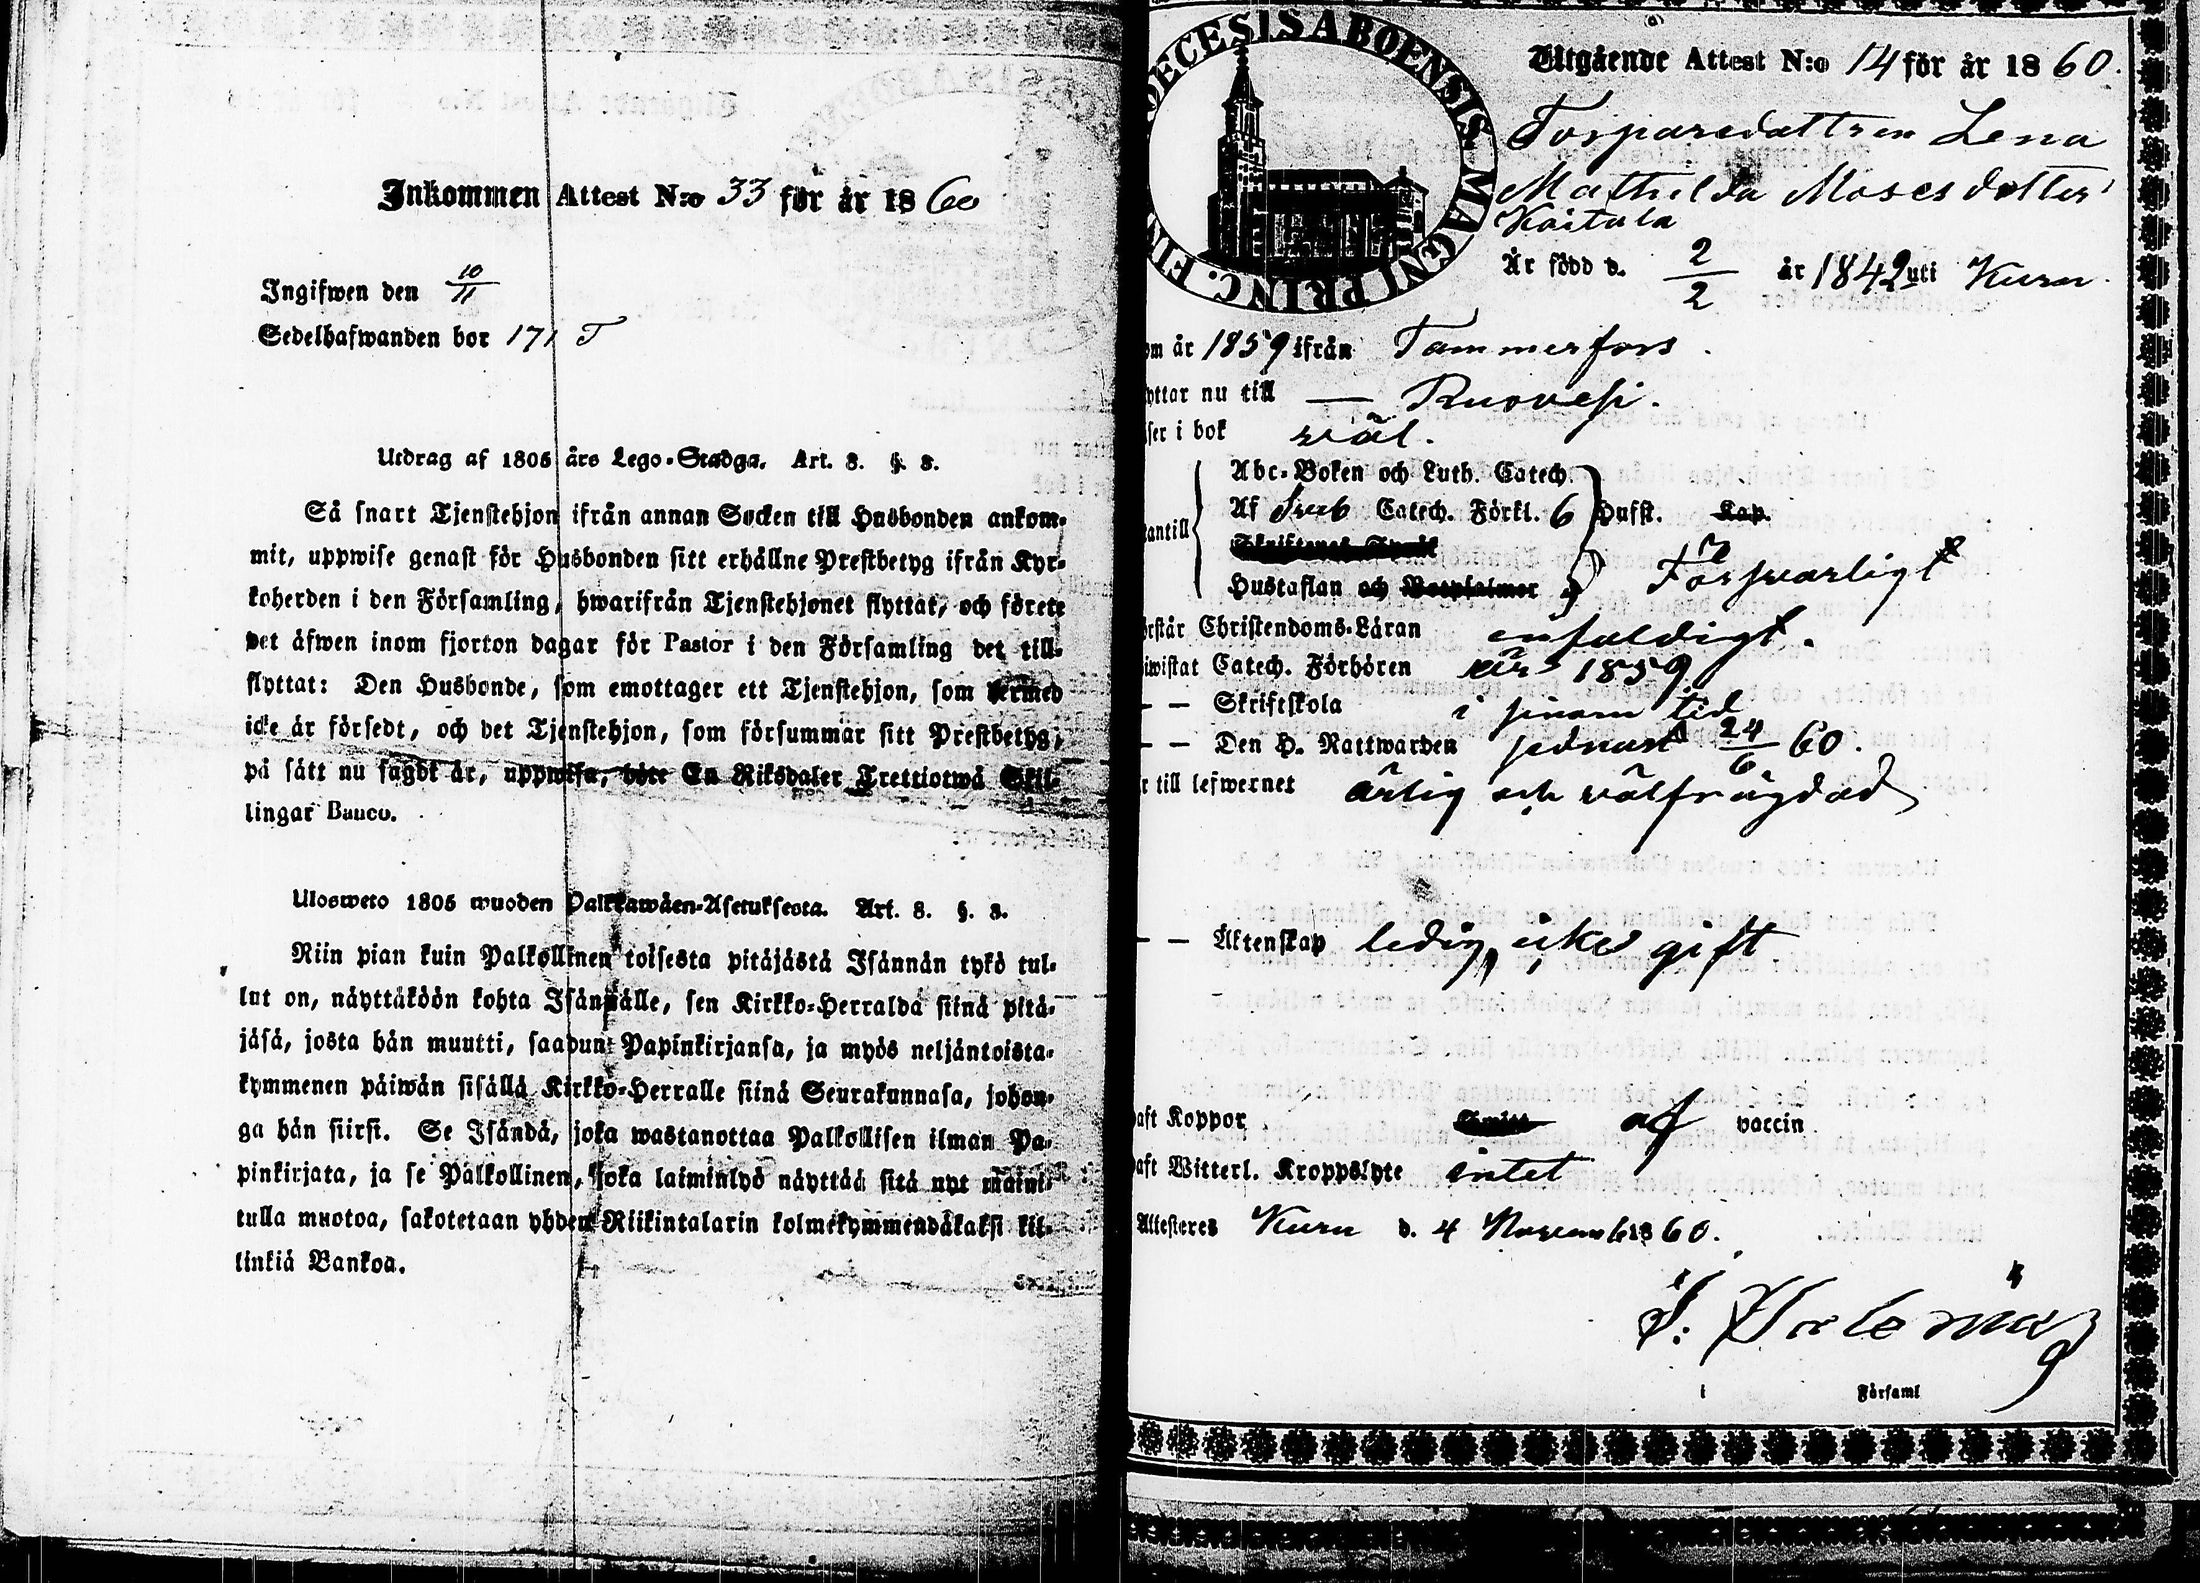 Inkommen Attest N:o 33 för år 1860
Ingifwen den 10/11
Sedelhafwanden bor 171 T
Utdrag af 1805 års Lego-Stadga. Art. 8. §. 8.
Så snart Tjenstehjon ifrån annan Socken till Husbonden ankom-
mit, uppwise genast för Husbonden sitt erhållne Prestbetyg ifrån Kyr-
koherden i den Församling, hwarifrån Tjenstehjonet flyttat, och förete
det äfwen inom fjorton dagar för Pastor i den Församling det till-
flyttat: Den Husbonde, som emottager ett Tjenstehjon, som dermed
icke är försedt, och det Tjenstehjon, som försummar sitt Prestbetyg,
på sätt nu sagdt är, uppwisa, böte En Riksdaler Trettiotwå Skil-
lingar Banco.
Ulosweto 1805 wuoden Palkkawäen-Asetuksesta. Art. 8. §. 8.
Niin pian kuin Palkollinen toisesta pitäjästä Isännän tykö tul-
lut on, näyttäköön kohta Isännälle, sen Kirkko-Herralda siinä pitä-
jäsä, josta hän muutti, saadun Papinkirjansa, ja myös neljäntoista-
kymmenen päiwän sisällä Kirkko-Herralle siinä Seurakunnasa, johon-
ga hän siirsi. Se Isändä, joka wastanottaa Palkollisen ilman Pa-
pinkirjata, ja se Palkollinen, joka laiminlyö näyttää sitä nyt maini-
tulla muotoa, sakotetaan yhden Riikintalarin kolmekymmendäkaksi kil-
linkiä Bankoa.
DECESIS ABOENSIS MAGNI PRINC. FIN
Utgående Attest N:o 14 för år 1860.
Torparedottren Lena
Mathilda Mosesdotter
Koitala
Är född d. 2/2 år 1842 uti Kuru.
om år 1859 ifrån Tammerfors.
yttar nu till — Ruovesi.
ser i bok wäl.
Abc-Boken och Luth. Catech.
Af Sveb Catech. Förkl. 6 Hufst. Kap.
antill
Hustaflan och Botpsalmer Försvarligt
rstår Christendoms-Läran enfaldigt.
iwistat Catech. Förhören år 1859
— — Skriftskola i sinom tid
— — Den H. Nattwarden sednast 24/6 60.
r till lefwernet ärlig och välfrägdad
— — Äktenskap ledig, icke gift
aft Koppor af vaccin
aft Witterl. Kroppslyte intet
Attesteres Kuru d. 4 Novemb 1860.
i Församl